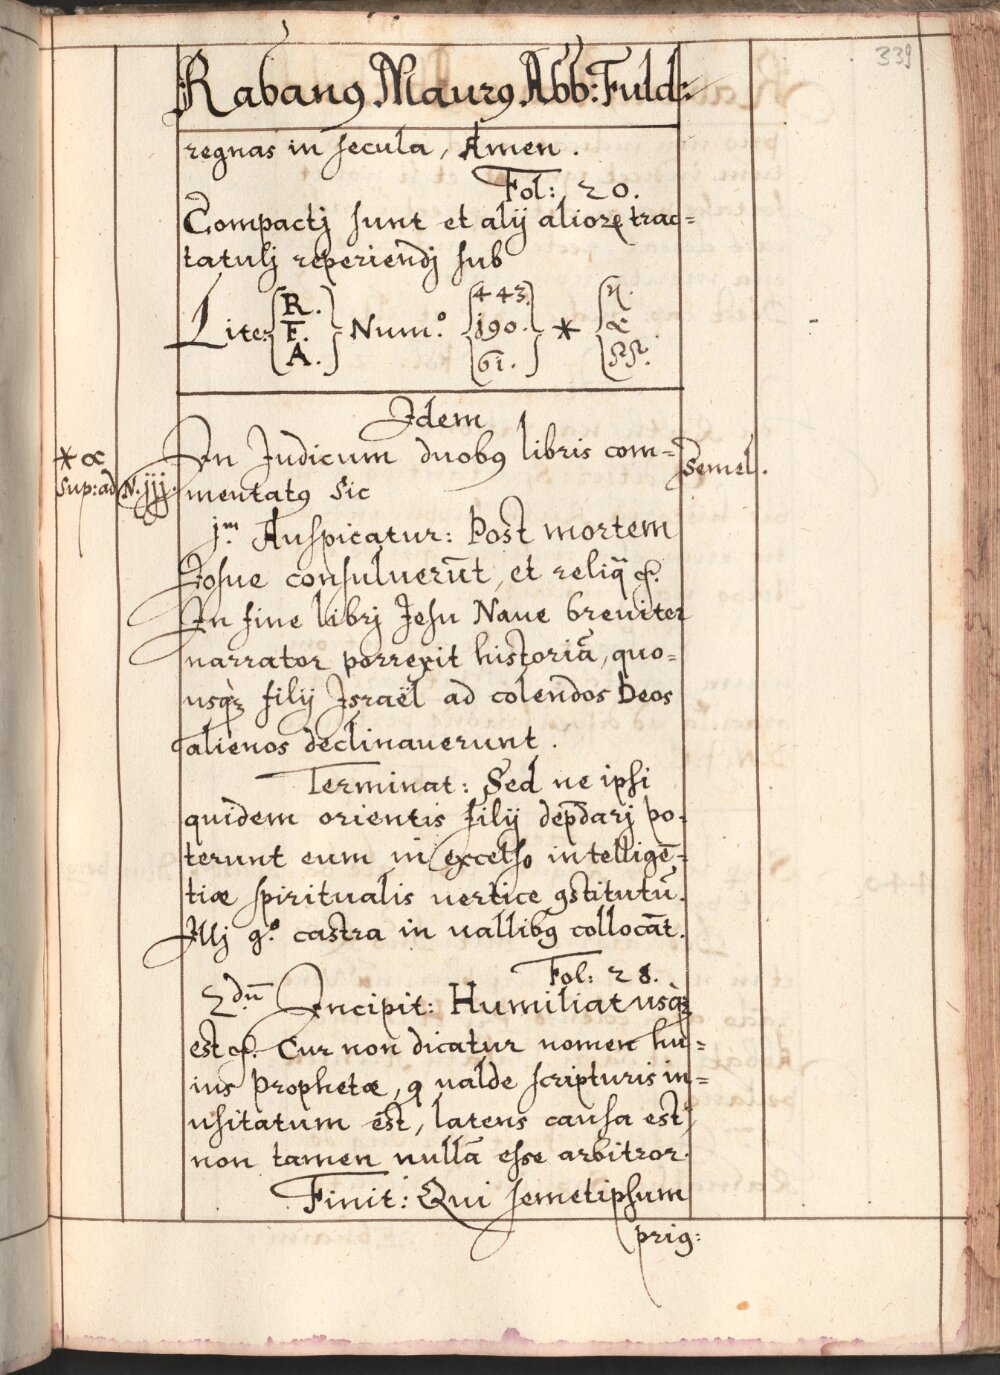 339
Rabanꝰ Maurꝰ Abb: Fuld:
regnas in secula, Amen.
Fol: 20.
Compactj sunt et alij alioꝝ trac=
tatulj reperiendj sub
Liter: R. Num.º 443. *
F. 190. α
A. 61.
Idem
In Judicum duobꝰ libris com= Semel.
* α
Sup: ad N. jjj. mentatꝰ sic
jᵐ Auspicatur: Post mortem
Josue consuluerūt, et reliq̃ &.
In fine librj Jesu Naue breuiter
narrator porrexit historiā, quo=
usqꝫ filij Israël ad colendos Deos
alienos declinauerunt.
Terminat: Sed ne ipsi
quidem orientis filij dep̄darj po-
terunt eum in excelso intelligē-
tiæ spiritualis uertice ꝯstitutū.
Illj gº castra in uallibꝰ collocāt.
Fol: 28.
2dū Incipit: Humiliatusqꝫ
est &. Cur non dicatur nomen hu=
ius Prophetæ, q ualde scripturis in=
usitatum est, latens causa est,
non tamen nullā esse arbitror.
Finit: Qui semetipsum
prig: